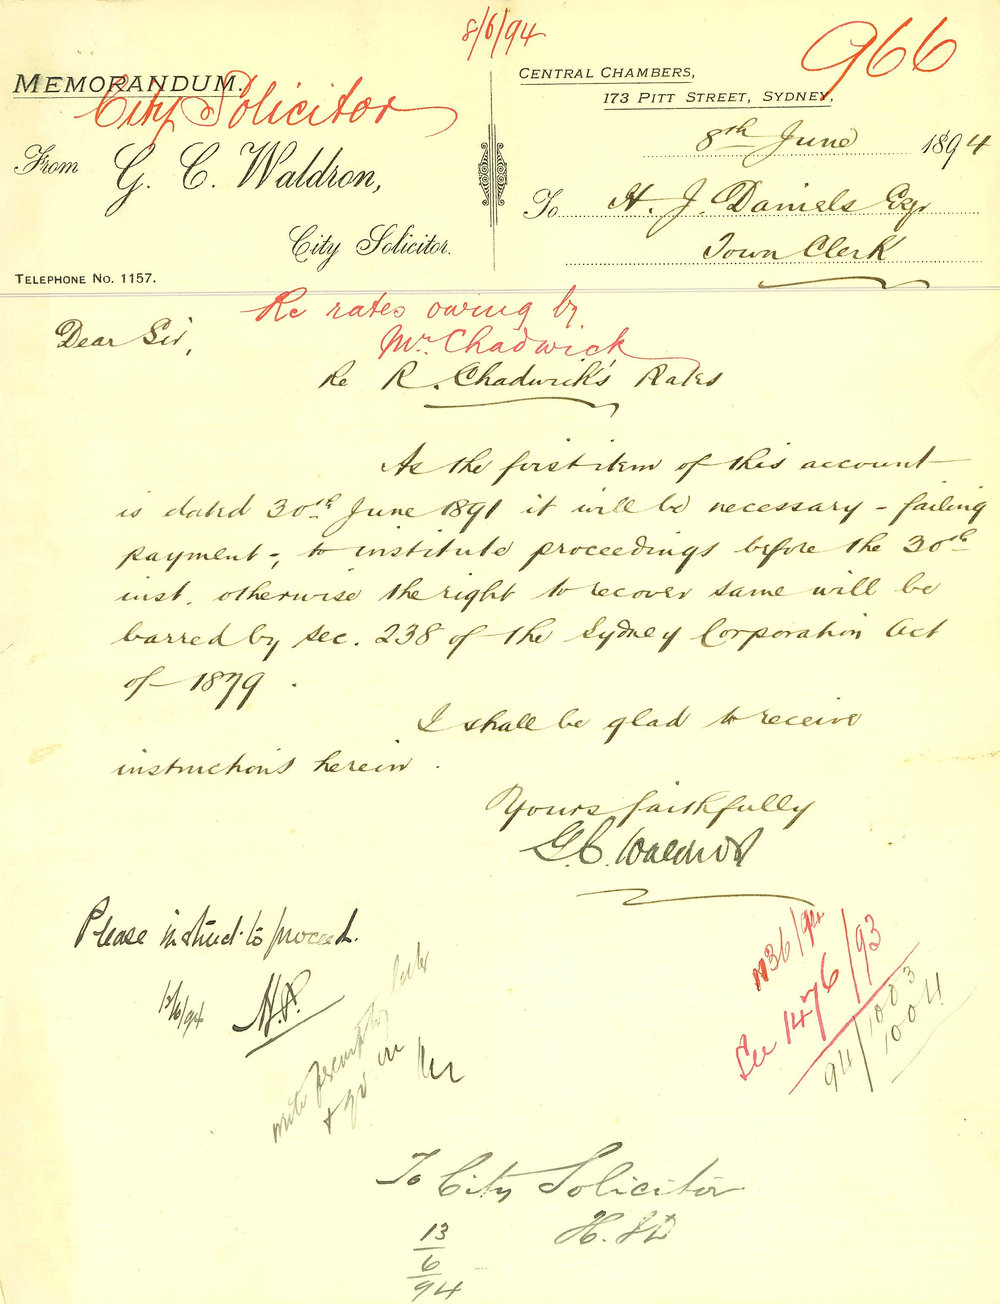 8/6/94
966
MEMORANDUM.
City Solicitor
From G. C. Waldron,
City Solicitor.
TELEPHONE No. 1157.
CENTRAL CHAMBERS,
173 PITT STREET, SYDNEY,
8th June 1894
To H. J. Daniels Esqr
Town Clerk
Re rates owing by
Mr. Chadwick
Dear Sir,
Re R. Chadwick's Rates
As the first item of this account
is dated 30th June 1891 it will be necessary - failing
payment -, to institute proceedings before the 30th
inst. otherwise the right to recover same will be
barred by sec. 238 of the Sydney Corporation Act
of 1879.
I shall be glad to receive
instructions herein.
Yours faithfully
G. C. Waldron
Please instruct to proceed.
12/6/94
write peremptory letter
+ go in
36/94
See 1476/93
94/1003
1004
To City Solicitor
H. J. D
13
6
94